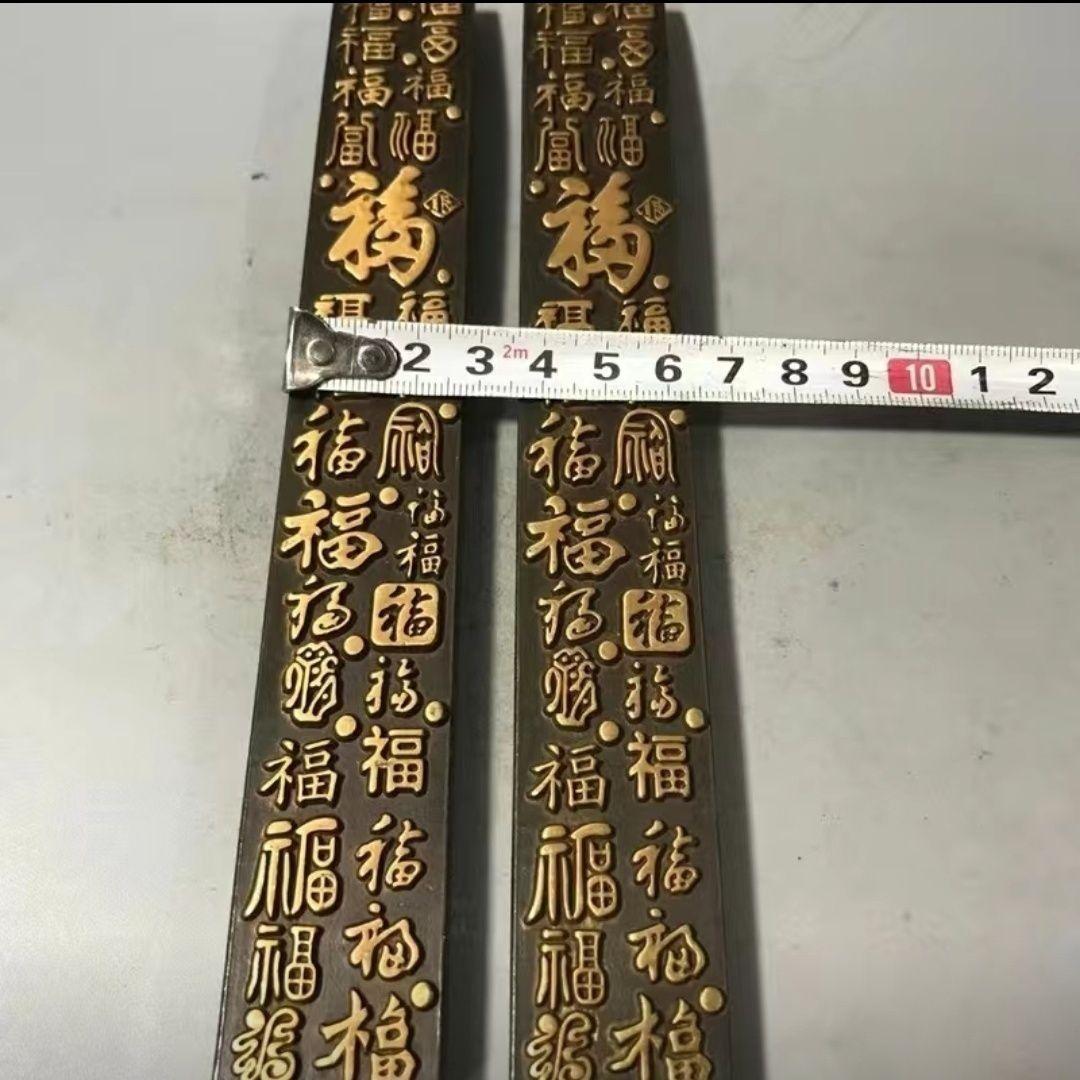 福 福
福 福
福 福
福 福
福
福 福
2 3 2m 4 5 6 7 8 9 10 1 2
福 福 福 福
福 福 福 福
福 福
福 福 福 福
福 福 福 福
福 福 福 福
福 福 福 福
福 福 福 福
福 福 福 福